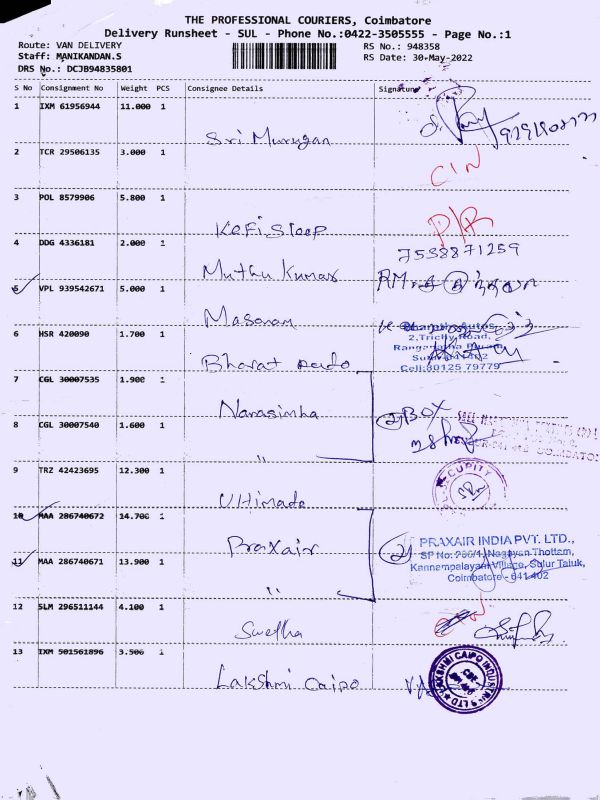 THE PROFESSIONAL COURIERS, Coimbatore
Delivery Runsheet - SUL - Phone No.:0422-3505555 - Page No.:1
Route: VAN DELIVERY
RS No.: 948358
Staff: MANIKANDAN.S
RS Date: 30-May-2022
DRS No.: DCJB94835801
S No Consignment No Weight PCS Consignee Details Signature
1 IXM 61956944 11.000 1
Sri Murugan
2 TCR 29506135 3.000 1
CIN
3 POL 8579906 5.800 1
Kofi Sloop
4 DDG 4336181 2.000 1
7538871259
Muthu Kumar
5 VPL 939542671 5.000 1
RM
Masanam
6 HSR 420090 1.700 1
Bharath Autos
2,Trichy Road,
Cell:80125 79779
Bharat
7 CGL 30007535 1.900 1
Narasimha
2 BOX
8 CGL 30007540 1.600 1
"
9 TRZ 42423695 12.300 1
SECURITY
Ultimate
10 MAA 286740672 14.700 1
Praxair
2
PRAXAIR INDIA PVT. LTD.,
Nagayan Thottam,
11 MAA 286740671 13.900 1
Kannampalayam Village, Sulur Taluk,
Coimbatore - 641 402
"
12 SLM 296511144 4.100 1
Swetha
13 IXM 501561896 3.500 1
Lakshmi Caipo
LAKSHMI CAIPO INDUSTRIES LTD